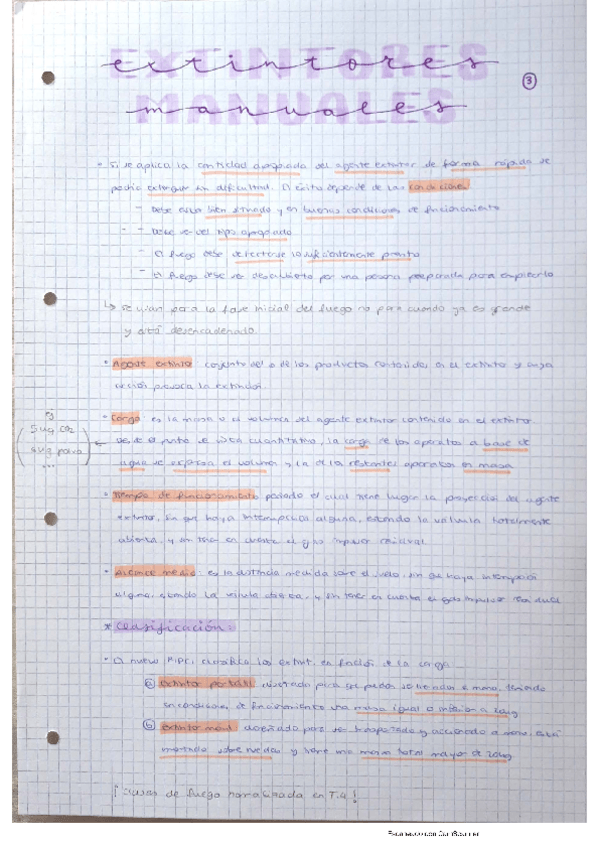 EXTINTORES
MANUALES
extintores
manuales
3
- Si se aplica la cantidad apropiada del agente extintor de forma rápida se
podrá extinguir sin dificultad. El éxito depende de las condiciones
- Debe estar bien situado y en buenas condiciones de funcionamiento
- Debe ser del tipo apropiado
- El fuego debe detectarse lo suficientemente pronto
- El fuego debe ser descubierto por una persona preparada para emplearlo
↳ se usan para la fase inicial del fuego no para cuando ya es grande
y está desencadenado.
• Agente extintor: conjunto del o de los productos contenidos en el extintor y cuya
acción provoca la extinción.
• Carga: es la masa o el volumen del agente extintor contenido en el extintor.
Desde el punto de vista cuantitativo, la carga de los aparatos a base de
agua se expresa el volumen y la de la restantes aparatos en masa
ej
5 kg CO2
...
• Tiempo de funcionamiento: periodo el cual tiene lugar la proyección del agente
extintor, sin que haya interrupción alguna, estando la valvula totalmente
abierta, y sin tener en cuenta el gas impulsor residual.
• Alcance medio: es la distancia medida sobre el suelo, sin que haya interrupción
alguna, estando la valvula abierta, y sin tener en cuenta el gas impulsor residual
* Clasificación:
• El nuevo RIPCI clasifica los extint. en función de la carga
a) Extintor portátil: diseñado para que puedan ser llevados a mano, teniendo
en condiciones de funcionamiento una masa igual o inferior a 20kg
b) Extintor movil: diseñado para ser transportado y accionado a mano, está
montado sobre ruedas y tiene una masa total mayor de 20kg
¡ Clases de fuego en T.4!
Escaneado con CamScanner